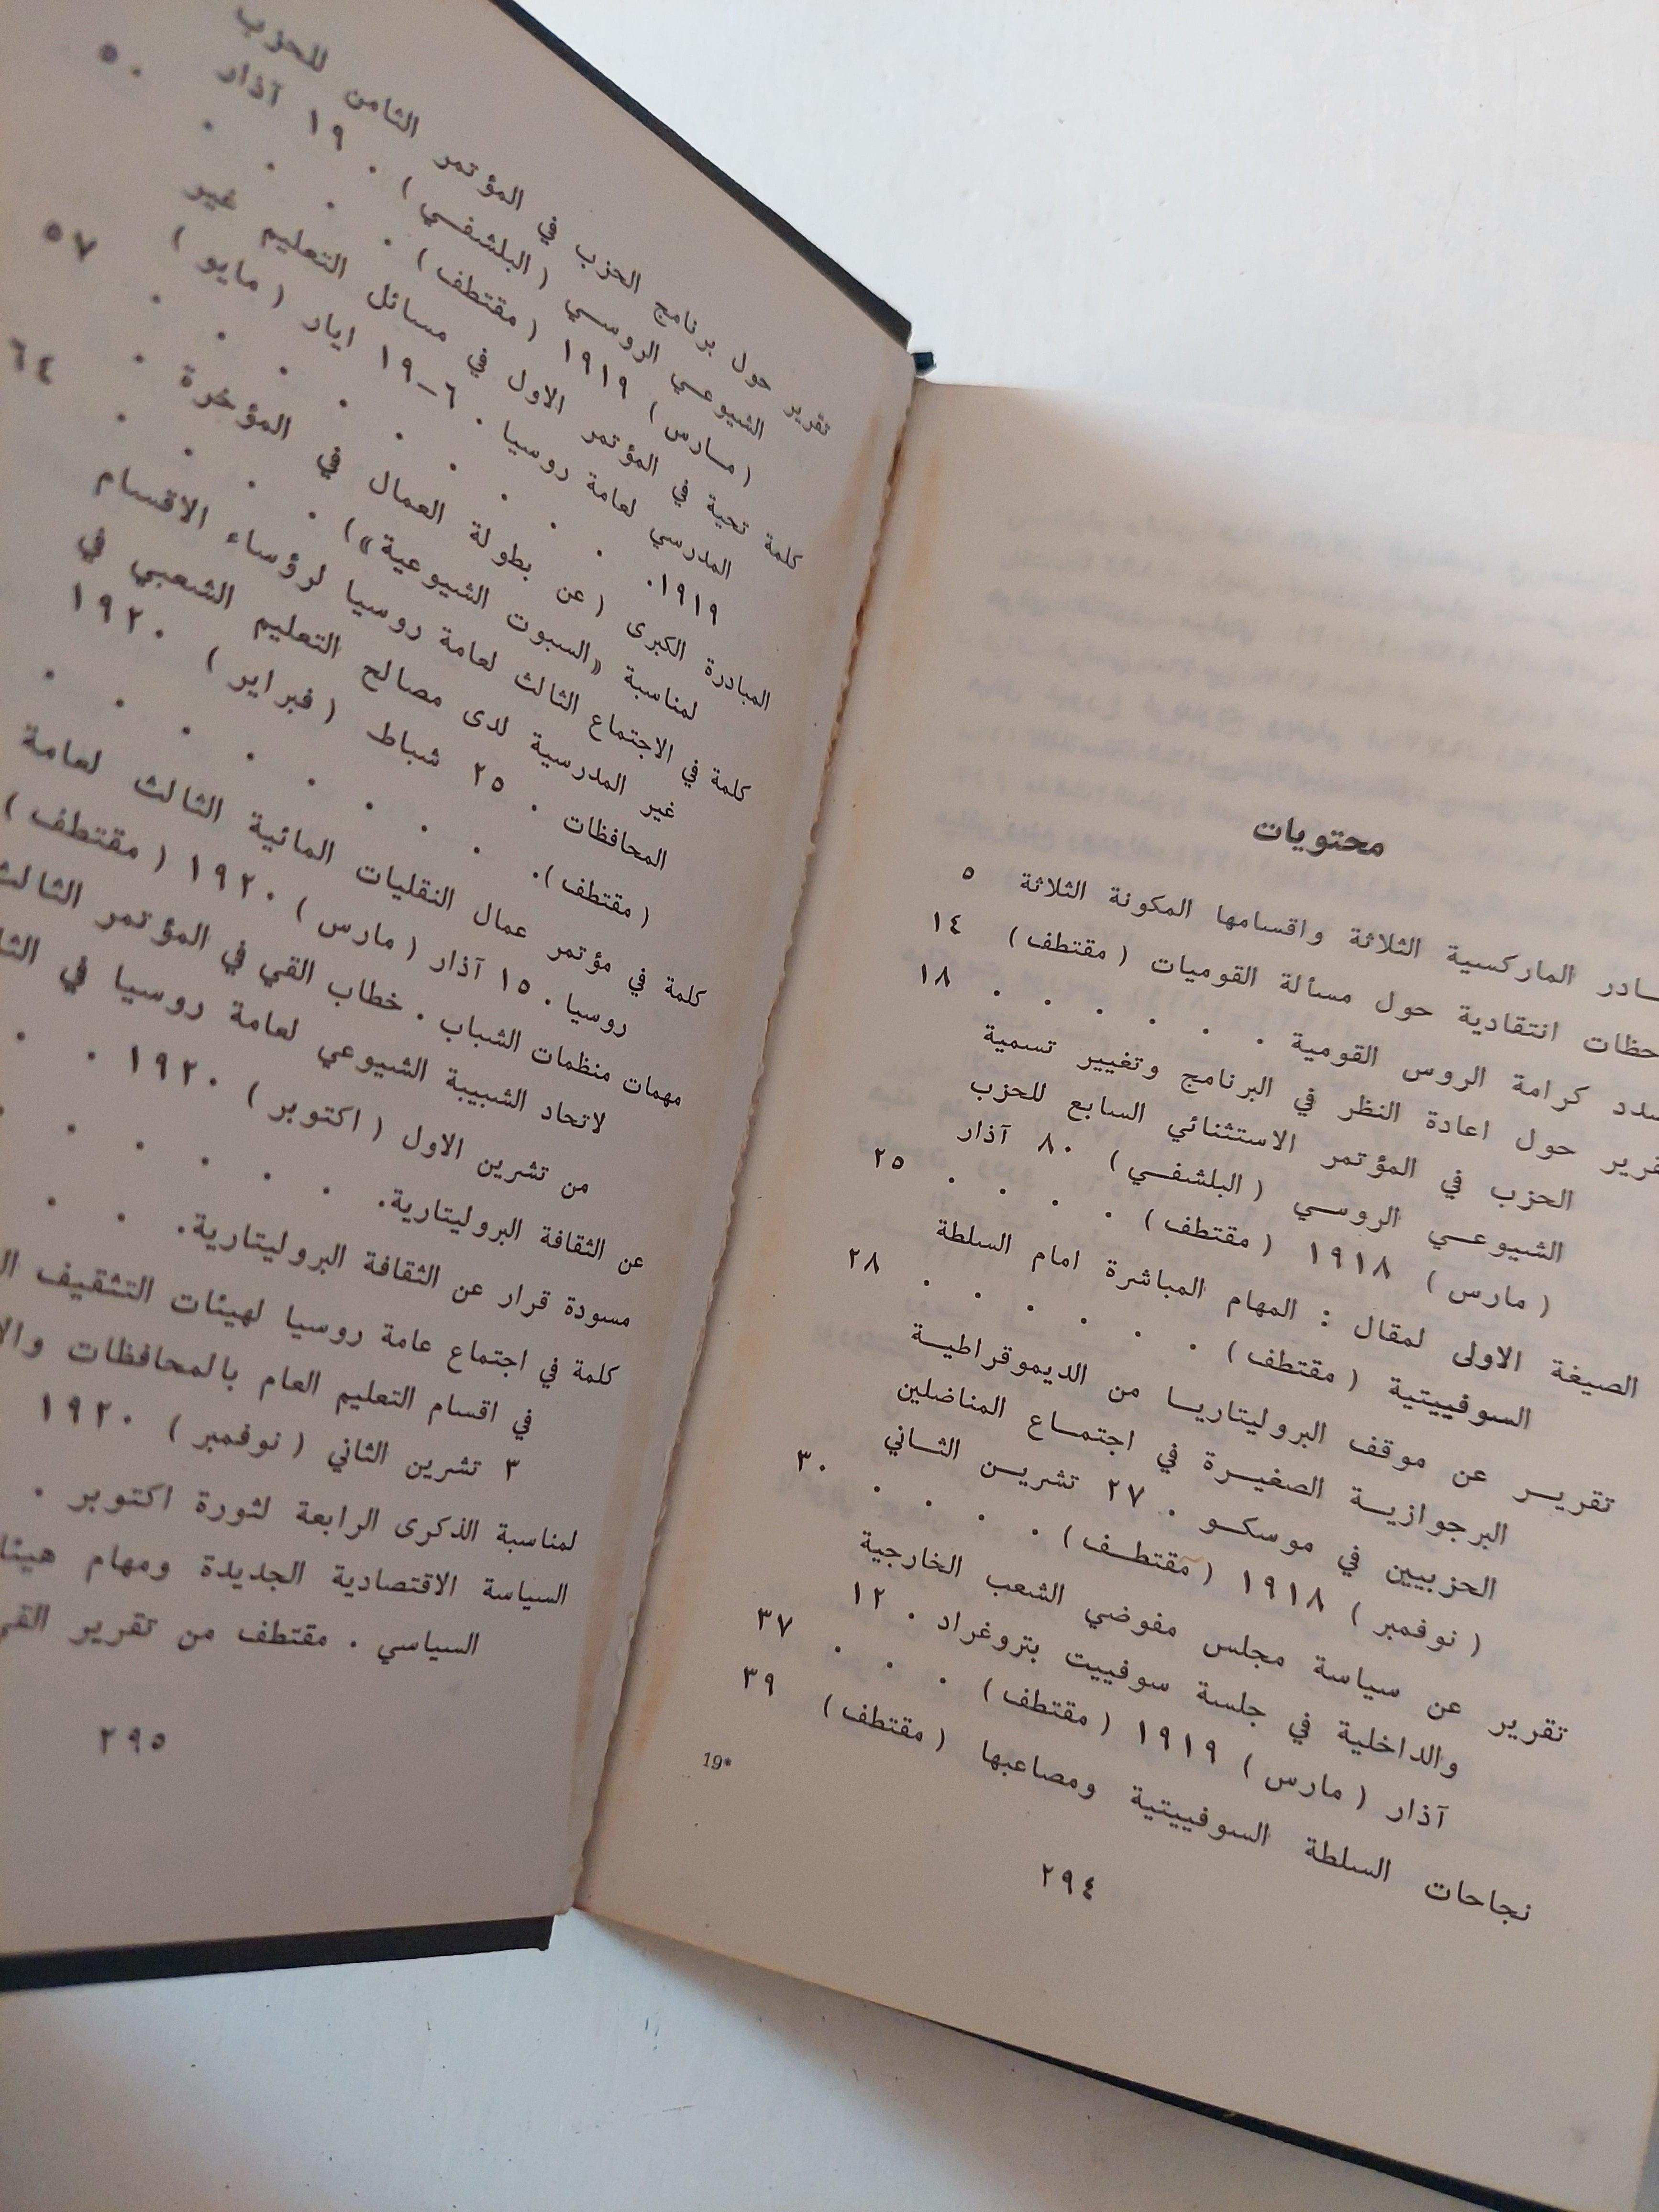 محتويات
الماركسية الثلاثة واقسامها المكونة الثلاثة ٥
انتقادية حول مسألة القوميات (مقتطف) ١٤
كرامة الروس القومية . . . . . . ١٨
حول اعادة النظر في البرنامج وتغيير تسمية
الحزب في المؤتمر الاستثنائي السابع للحزب
الشيوعي الروسي (البلشفي) ٨٠ آذار
(مارس) ١٩١٨ (مقتطف) . . . . ٢٥
الصيغة الاولى لمقال : المهام المباشرة امام السلطة
السوفييتية (مقتطف) . . . . . . ٢٨
تقرير عن موقف البروليتاريا من الديموقراطية
البرجوازية الصغيرة في اجتماع المناضلين
الحزبيين في موسكو . ٢٧ تشرين الثاني
(نوفمبر) ١٩١٨ (مقتطف) . . . . ٣٠
تقرير عن سياسة مجلس مفوضي الشعب الخارجية
والداخلية في جلسة سوفييت بتروغراد . ١٢
آذار (مارس) ١٩١٩ (مقتطف) . . . ٣٧
نجاحات السلطة السوفييتية ومصاعبها (مقتطف) ٣٩
19*
٢٩٤
تقرير حول برنامج الحزب في المؤتمر الثامن للحزب
الشيوعي الروسي (البلشفي) . ١٩ آذار
(مارس) ١٩١٩ (مقتطف) . . . . ٥٠
كلمة تحية في المؤتمر الاول في مسائل التعليم غير
المدرسي لعامة روسيا . ٦-١٩ ايار (مايو)
١٩١٩. . . . . . . . . . ٥٧
المبادرة الكبرى (عن بطولة العمال في المؤخرة .
لمناسبة «السبوت الشيوعية») . . . . ٦٤
كلمة في الاجتماع الثالث لعامة روسيا لرؤساء الاقسام
غير المدرسية لدى مصالح التعليم الشعبي في
المحافظات . ٢٥ شباط (فبراير) ١٩٢٠
(مقتطف). . . . . . . . .
كلمة في مؤتمر عمال النقليات المائية الثالث لعامة
روسيا . ١٥ آذار (مارس) ١٩٢٠ (مقتطف)
مهمات منظمات الشباب . خطاب القي في المؤتمر الثالث
لاتحاد الشبيبة الشيوعي لعامة روسيا في
من تشرين الاول (اكتوبر) ١٩٢٠ . .
عن الثقافة البروليتارية. . . . . .
مسودة قرار عن الثقافة البروليتارية. . .
كلمة في اجتماع عامة روسيا لهيئات التثقيف
في اقسام التعليم العام بالمحافظات
٣ تشرين الثاني (نوفمبر) ١٩٢٠
لمناسبة الذكرى الرابعة لثورة اكتوبر .
السياسة الاقتصادية الجديدة ومهام
السياسي . مقتطف من تقرير
٢٩٥